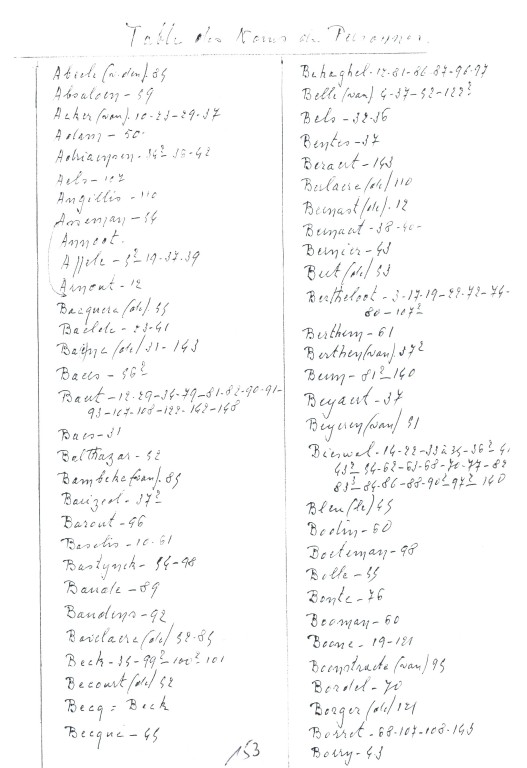 Table des Noms de Personnes.
Abiele (v. den). 84
Absaloen - 49
Acker (van). 10-23-29-37
Adam - 50.
Adriaenssen - 34² 36-42
Aels - 107
Angillis - 110
Anneman - 44
Annoot.
Appele - 5² 19-37-39
Arnout - 12
Bacquera (de). 44
Baelde - 23-41
Baenne (de) 31 - 143
Baers - 46²
Baert - 12-29-34-79-81-82-90-91-
93-107-108-122-142-148
Baes - 31
Balthazar - 42
Bambeke (van). 84
Barizeel - 37²
Barout - 66
Baselis - 10-61
Bastynck - 54-98
Baude - 89
Baudens - 92
Bavelaere (de) 42-84
Beck - 34-99² 100² 101
Becourt (de) 42
Becq = Beck
Becque - 44
Behaghel - 12-81-86-87-96-97
Belle (van) 4-37-42-122²
Bels - 32-36
Bentes - 37
Beraert - 143
Berlaere (de) 110
Bernast (de). 12
Bernaert - 38-40-
Bernier - 43
Bert (de) 43
Bertheloot - 3-17-19-22-72-74-
80-107²
Berthem - 61
Berthen (van). 37²
Beun - 81² 140
Beyaert - 37
Beyeren (van) 41
Bieswal - 14-22-33 à 34-36²
43² 54-62-63-68-70-77-82
83³ 84-86-88-90² 92² 140
Bleu (le) 44
Bodin - 60
Boeteman - 98
Bolle - 44
Bonte - 76
Booman - 60
Boone - 19-121
Boonstraete (van) 94
Bordel - 70
Borger (de) 121
Borret - 68-107-108-143
Borry - 43
153